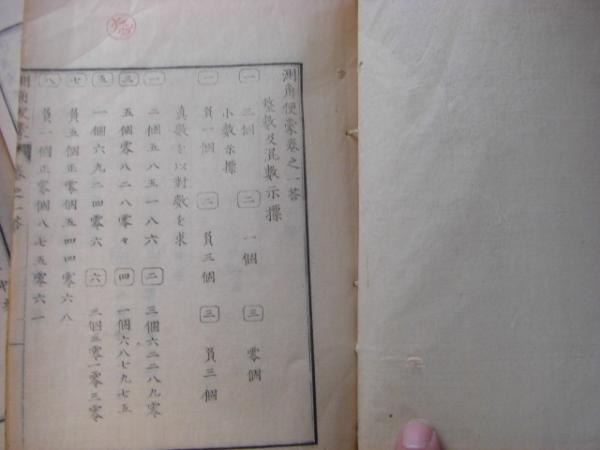 測角便蒙卷之一答
整数及混数示標
一 二個 二 一個 三 零個
小数示標
一 負一個 二 負三個 三 負三個
真数を以対数を求
一 二個五八五一八六 二 三個六二二八九零
三 五個零八二八零々 四 一個六八七九七五
五 一個六九二四零六 六 三個三零一零三零
七 負五個正零個五四四零六八
八 負一個正零個八七五零六一
測角便蒙 卷之一答